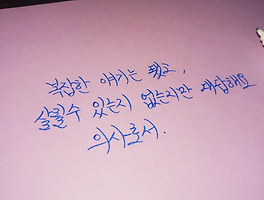 복잡한 얘기는 됐고,
살릴수 있는지 없는지만 대답해요
의사로서.